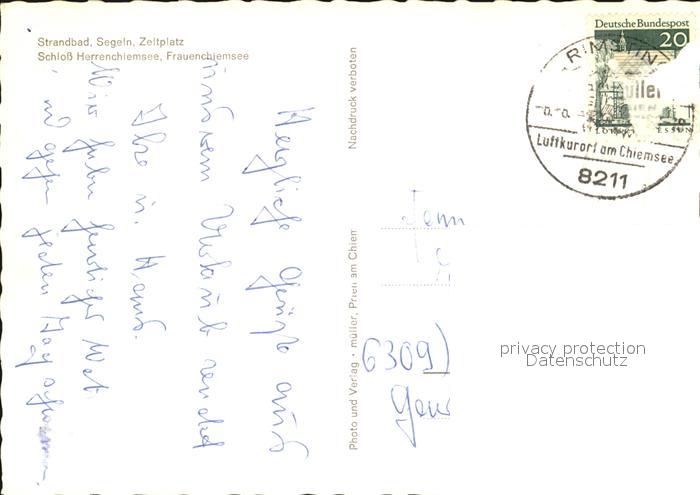 Strandbad, Segeln, Zeltplatz
Schloß Herrenchiemsee, Frauenchiemsee
Herzliche Grüße aus
unserem Urlaub sendet
Ihre u. Hans.
Wir haben herrliches Wet.
und gehen jeden Tag schwimmen.
Nachdruck verboten
Photo und Verlag · müller, Prien am Chiem
Deutsche Bundespost
20
ESSEN
RIMSTIN
Luftkurort am Chiemsee
8211
6309)
privacy protection
Datenschutz